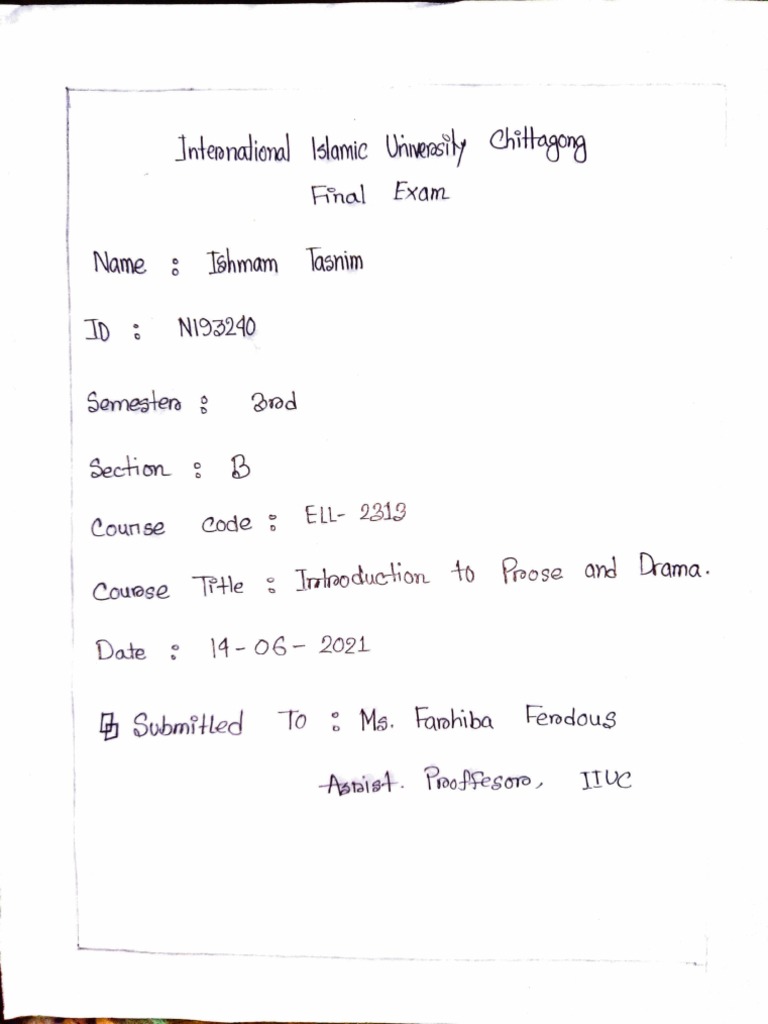 International Islamic University Chittagong
Final Exam
Name : Ishmam Tasnim
ID : N193240
Semester : 3rd
Section : B
Course code : ELL- 2313
Course Title : Introduction to Prose and Drama.
Date : 14-06-2021
Submitted To : Ms. Farhiba Ferdous
Assist. Proffesor, IIUC